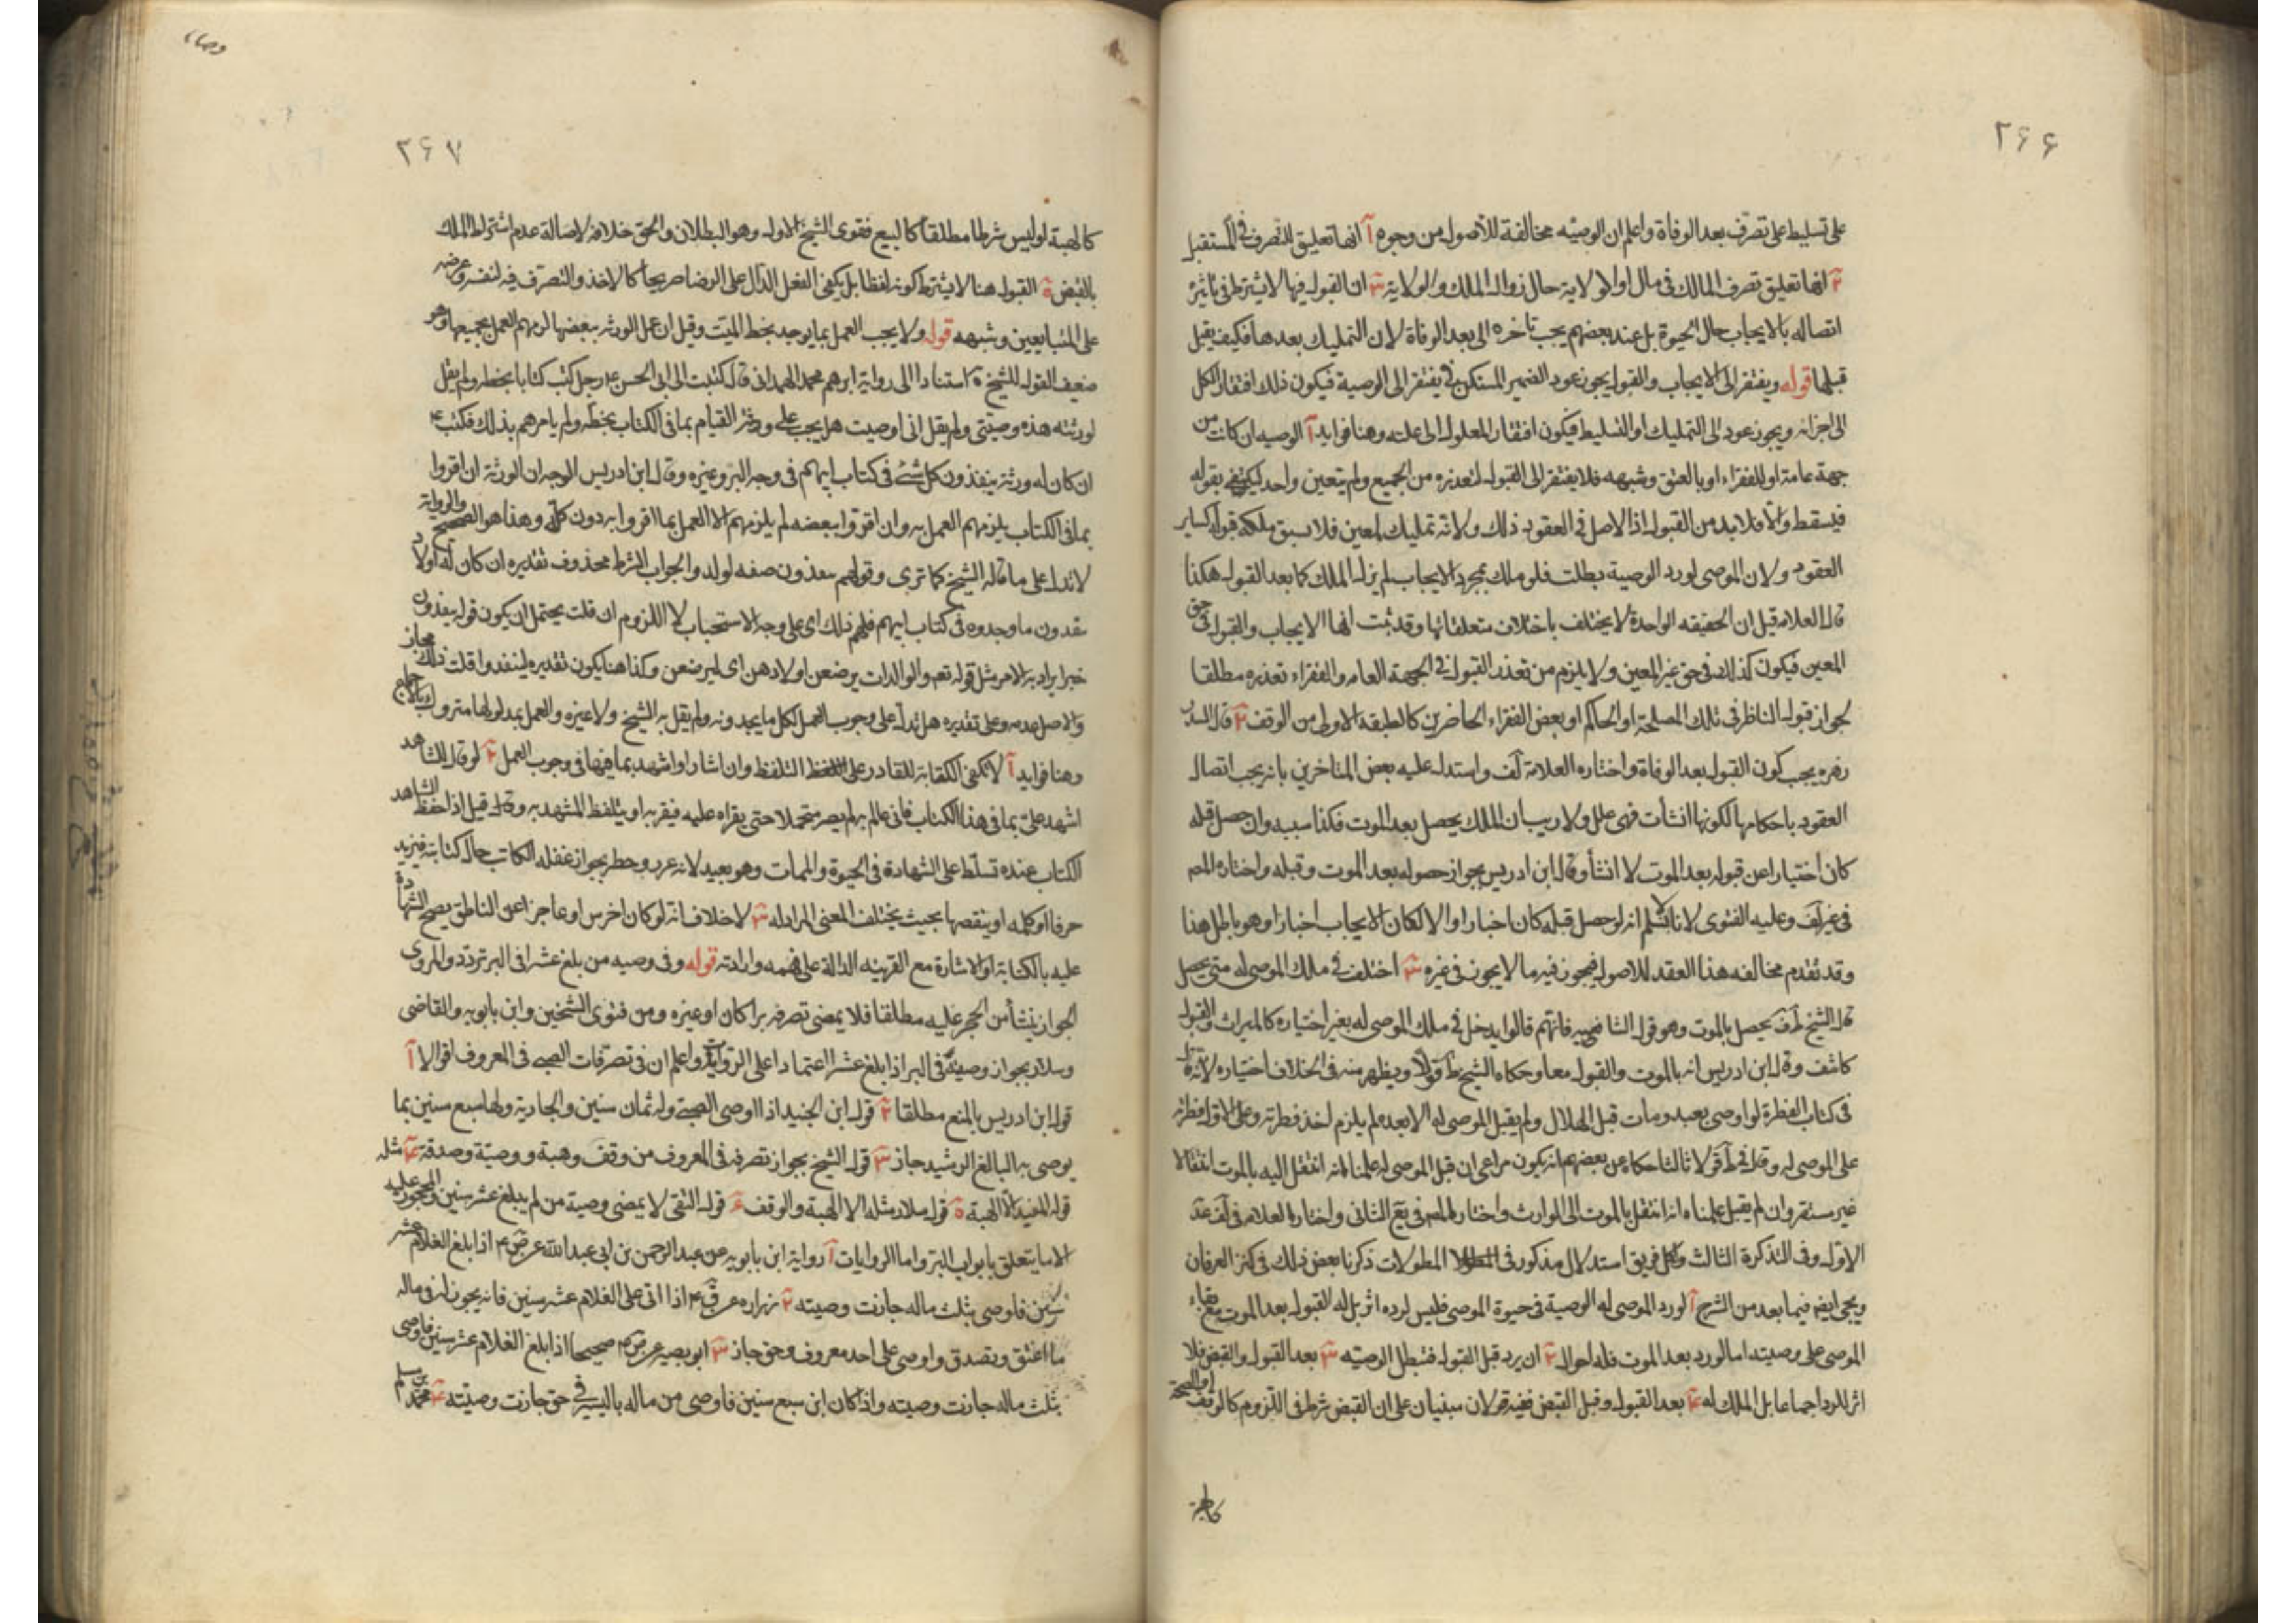 ٢۶۶
على تسليط على تصرف بعد الوفاة واعلم ان الوصيه مخالفة للاصول من وجوه آ انها تعليق للتصرف في المستقبل
٢ انها تعليق تصرف المالك فى مال او ولاية حال زوال الملك والولاية ٣ ان القبول فيها لا يشترط فى تاثيره
اتصاله بالايجاب حال الحيوة بل عند بعضهم يجب تاخره الى بعد الوفاة لان التمليك بعدها فكيف يقبل
قبلها قوله ويفتقر الى الايجاب والقبول يجوز عود الضمير المستكن في يفتقر الى الوصية فيكون ذلك افتقار الكل
الى اجزائه ويجوز عوده الى التمليك او التسليط فيكون افتقار المعلول الى علته وهنا فوايد آ الوصيه ان كانت من
جهة عامة او للفقراء او بالعتق وشبهه فلا يفتقر الى القبول لتعذره من الجميع ولم يتعين واحد ليكتفى بقوله
فيسقط والا فلا بد من القبول اذ الاصل في العقود ذلك ولانه تمليك لمعين فلا سبق ملكه قبوله كساير
العقود ولان الموصى لو رد الوصية بطلت فلو ملك بمجرد الايجاب لم يزل الملك كما بعد القبول هكذا
قال العلامه قيل ان الحقيقه الواحدة لا يختلف باختلاف متعلقاتها وقد ثبت انها الايجاب والقبول في حق
المعين فيكون كذلك في حق غير المعين ولا يلزم من تعذر القبول في الجهة العامه والفقراء تعذره مطلقا
لجواز قبول الناظر في تلك المصلحة او الحاكم او بعض الفقراء الحاضرين كالطبقه الاولى من الوقف ٢ قال السيد
زهره يجب كون القبول بعد الوفاة واختاره العلامة لف واستدل عليه بعض المتاخرين بانه يجب اتصال
العقود باحكامها لكونها انشأت فهى علل ولا ريب ان الملك يحصل بعد الموت فكذا سببه وان حصل قبله
كان اختيارا عن قبوله بعد الموت لا انشأ وقال ابن ادريس بجواز حصوله بعد الموت وقبله واختاره المص
في غير لف وعليه الفتوى لانا لا نسلم انه لو حصل قبله كان اخبارا والا لكان الايجاب اخبارا وهو باطل هذا
وقد تقدم مخالفه هذا العقد للاصول فيجوز فيه ما لا يجوز في غيره ٣ اختلف في ملك الموصى له متى يحصل
قال الشيخ ط ف يحصل بالموت وهو قول الشافعي فانهم قالوا يدخل في ملك الموصى له بغير اختياره كالميراث والقبول
كاشف وقال ابن ادريس انه بالموت والقبول معا وحكاه الشيخ ط قولا ويظهر منه في الخلاف اختياره لانه قال
فى كتاب الفطرة لو اوصى بعبد ومات قبل الهلال ولم يقبل الموصى له الا بعده لم يلزم احد فطرته وعلى الاول فطرته
على الموصى له وقال في ط قولا ثالثا حكاه عن بعضهم انه يكون مراعى ان قبل الموصى له علمنا انه انتقل اليه بالموت انتقالا
غير مستقر وان لم يقبل علمنا انه انتقل بالموت الى الوارث واختار المص في يع الثانى واختار العلامه في لف عد
الاول وفى التذكرة الثالث ولكل فريق استدلال مذكور فى المطولات ذكرنا بعض ذلك في كنز العرفان
ويجى ايضم فيما بعد من الشرح آ لو رد الموصى له الوصية في حيوة الموصى فليس لرده اثر بل له القبول بعد الموت مع بقاء
الموصى على وصيته اما لو رد بعد الموت فله احوال ٢ ان يرد قبل القبول فتبطل الوصيه ٣ بعد القبول والقبض فلا
اثر للرد اجماعا بل الملك له ٤ بعد القبول وقبل القبض ففيه قولان مبنيان على ان القبض شرط في اللزوم كالوقف او الصحة
كالهبة
وصايا
٢۶٧
كالهبة او ليس شرطا مطلقا كالبيع فقوى الشيخ الاول وهو البطلان والحق خلافه لاصالة عدم اشتراط الملك
بالقبض ة القبول هنا لا يشترط كونه لفظا بل يكفى الفعل الدال على الرضا صريحا كالاخذ والتصرف فيه لنفسه وعرضه
على المتبايعين وشبهه قوله ولا يجب العمل بما يوجد بخط الميت وقيل ان عمل الورثه ببعضها لزمهم العمل بجميعها وهو
ضعيف القول للشيخ ة استنادا الى رواية ابرهيم محمد الهمدانى قال كتبت الى ابى الحسن ع رجل كتب كتابا بخطه ولم يقل
لورثته هذه وصيتى ولم يقل انى اوصيت هل يجب على ورثته القيام بما فى الكتاب بخطه ولم يامرهم بذلك فكتب ع
ان كان له ورثة ينفذون كل شئ في كتاب ابيهم فى وجه البر وغيره وقال ابن ادريس الوجه ان الورثة ان اقروا
بما في الكتاب يلزمهم العمل به وان اقروا ببعضه لم يلزمهم الا العمل بما اقروا به دون كله وهذا هو الصحيح والرواية
لا تدل على ما قاله الشيخ كما ترى وقولهم ينفذون صفه لولد والجواب الشرط محذوف تقديره ان كان له اولاد
ينفذون ما وجدوه فى كتاب ابيهم فلهم ذلك اى على وجه الاستحباب لا اللزوم ان قلت يحتمل ان يكون قوله ينفذون
خبرا يراد به الامر مثل قوله تعم والوالدات يرضعن اولادهن اى ليرضعن وكذا هنا يكون تقديره لينفذوا قلت ذلك مجاز
والاصل عدمه وعلى تقديره هل تدل على وجوب العمل لكل ما يجدونه ولم يقل به الشيخ ولا غيره والعمل بمدلولها متروك بالاجماع
وهنا فوايد آ لا تكفى الكتابة للقادر على التلفظ وان اشار او اشهد بما فيها في وجوب العمل ٢ لو قال للشاهد
اشهد على بما فى هذا الكتاب فانى عالم به لم يصر متحملا حتى يقراه عليه فيقر به او يتلفظ المشهد به وقال قيل اذا حفظ الشاهد
الكتاب عنده تسلط على الشهادة فى الحيوة والممات وهو بعيد لانه غرر وخطر بجواز غفله الكاتب حال كتابته فيزيد
حرفا او كلمه او ينقصها بحيث يختلف المعنى المراد له ٣ لا خلاف انه لو كان اخرس او عاجزا عن الناطق يصح الشهادة
عليه بالكتابة او الاشارة مع القرينه الدالة على فهمه وارادته قوله وفى وصيه من بلغ عشرا فى البر تردد والمروى
الجواز ينشأ من الحجر عليه مطلقا فلا يمضى تصرفه برا كان او غيره ومن فتوى الشيخين وابن بابويه والقاضى
وسلار بجواز وصيته فى البر اذا بلغ عشرا اعتمادا على الروايات واعلم ان في تصرفات الصبى فى المعروف اقوالا آ
قول ابن ادريس بالمنع مطلقا ٢ قول ابن الجنيد اذا اوصى الصبى وله ثمان سنين والجارية ولها سبع سنين بما
يوصى به البالغ الرشيد جاز ٣ قول الشيخ بجواز تصرفه فى المعروف من وقف وهبة ووصية وصدقة ٤ مثله
قول المفيد الا الهبة ة قول سلار مثله الا الهبة والوقف ۶ قول التقى لا يمضى وصية من لم يبلغ عشر سنين والمحجور عليه
الا ما يتعلق بابواب البر واما الروايات آ رواية ابن بابويه عن عبد الرحمن بن ابى عبد الله عن ص ع م اذا بلغ الغلام عشر
سنين فاوصى بثلث ماله جازت وصيته ٢ زراره عن ق ع م اذا اتى على الغلام عشر سنين فانه يجوز له فى ماله
ما اعتق وتصدق واوصى على احد معروف وحق جاز ٣ ابو بصير عن ص ع م صحيحا اذا بلغ الغلام عشر سنين فاوصى
بثلث ماله جازت وصيته واذا كان ابن سبع سنين فاوصى من ماله باليسير في حق جازت وصيته ٤ محمد بن مسلم